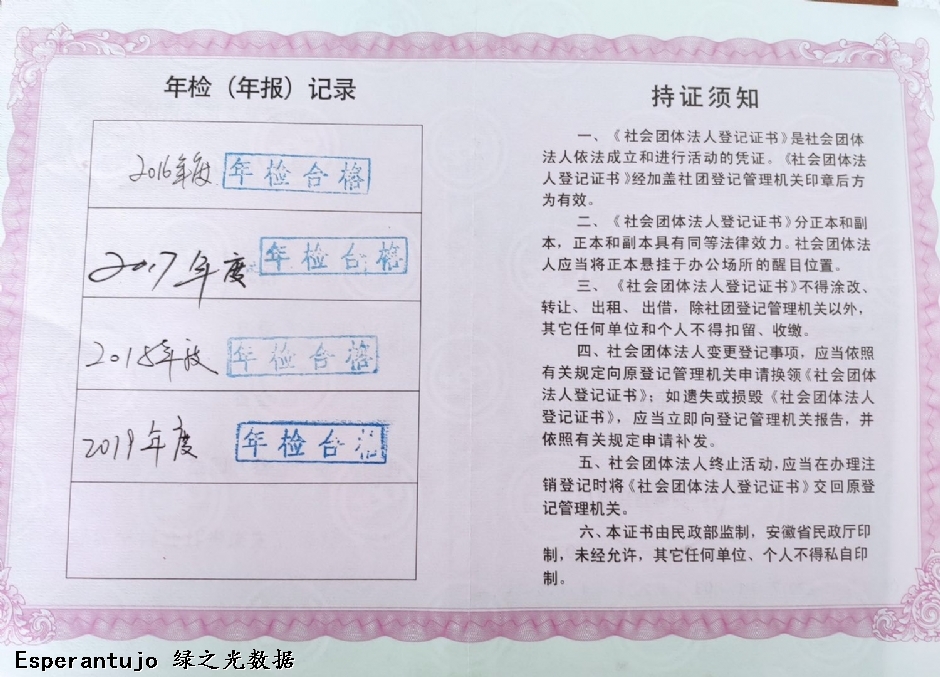 年检（年报）记录
2016年度 年检合格
2017年度 年检合格
2018年度 年检合格
2019年度 年检合
持证须知
一、《社会团体法人登记证书》是社会团体
法人依法成立和进行活动的凭证。《社会团体法
人登记证书》经加盖社团登记管理机关印章后方
为有效。
二、《社会团体法人登记证书》分正本和副
本，正本和副本具有同等法律效力。社会团体法
人应当将正本悬挂于办公场所的醒目位置。
三、《社会团体法人登记证书》不得涂改、
转让、出租、出借，除社团登记管理机关以外，
其它任何单位和个人不得扣留、收缴。
四、社会团体法人变更登记事项，应当依照
有关规定向原登记管理机关申请换领《社会团体
法人登记证书》；如遗失或损毁《社会团体法人
登记证书》，应当立即向登记管理机关报告，并
依照有关规定申请补发。
五、社会团体法人终止活动，应当在办理注
销登记时将《社会团体法人登记证书》交回原登
记管理机关。
六、本证书由民政部监制，安徽省民政厅印
制，未经允许，其它任何单位、个人不得私自印
制。
Esperantujo 绿之光数据